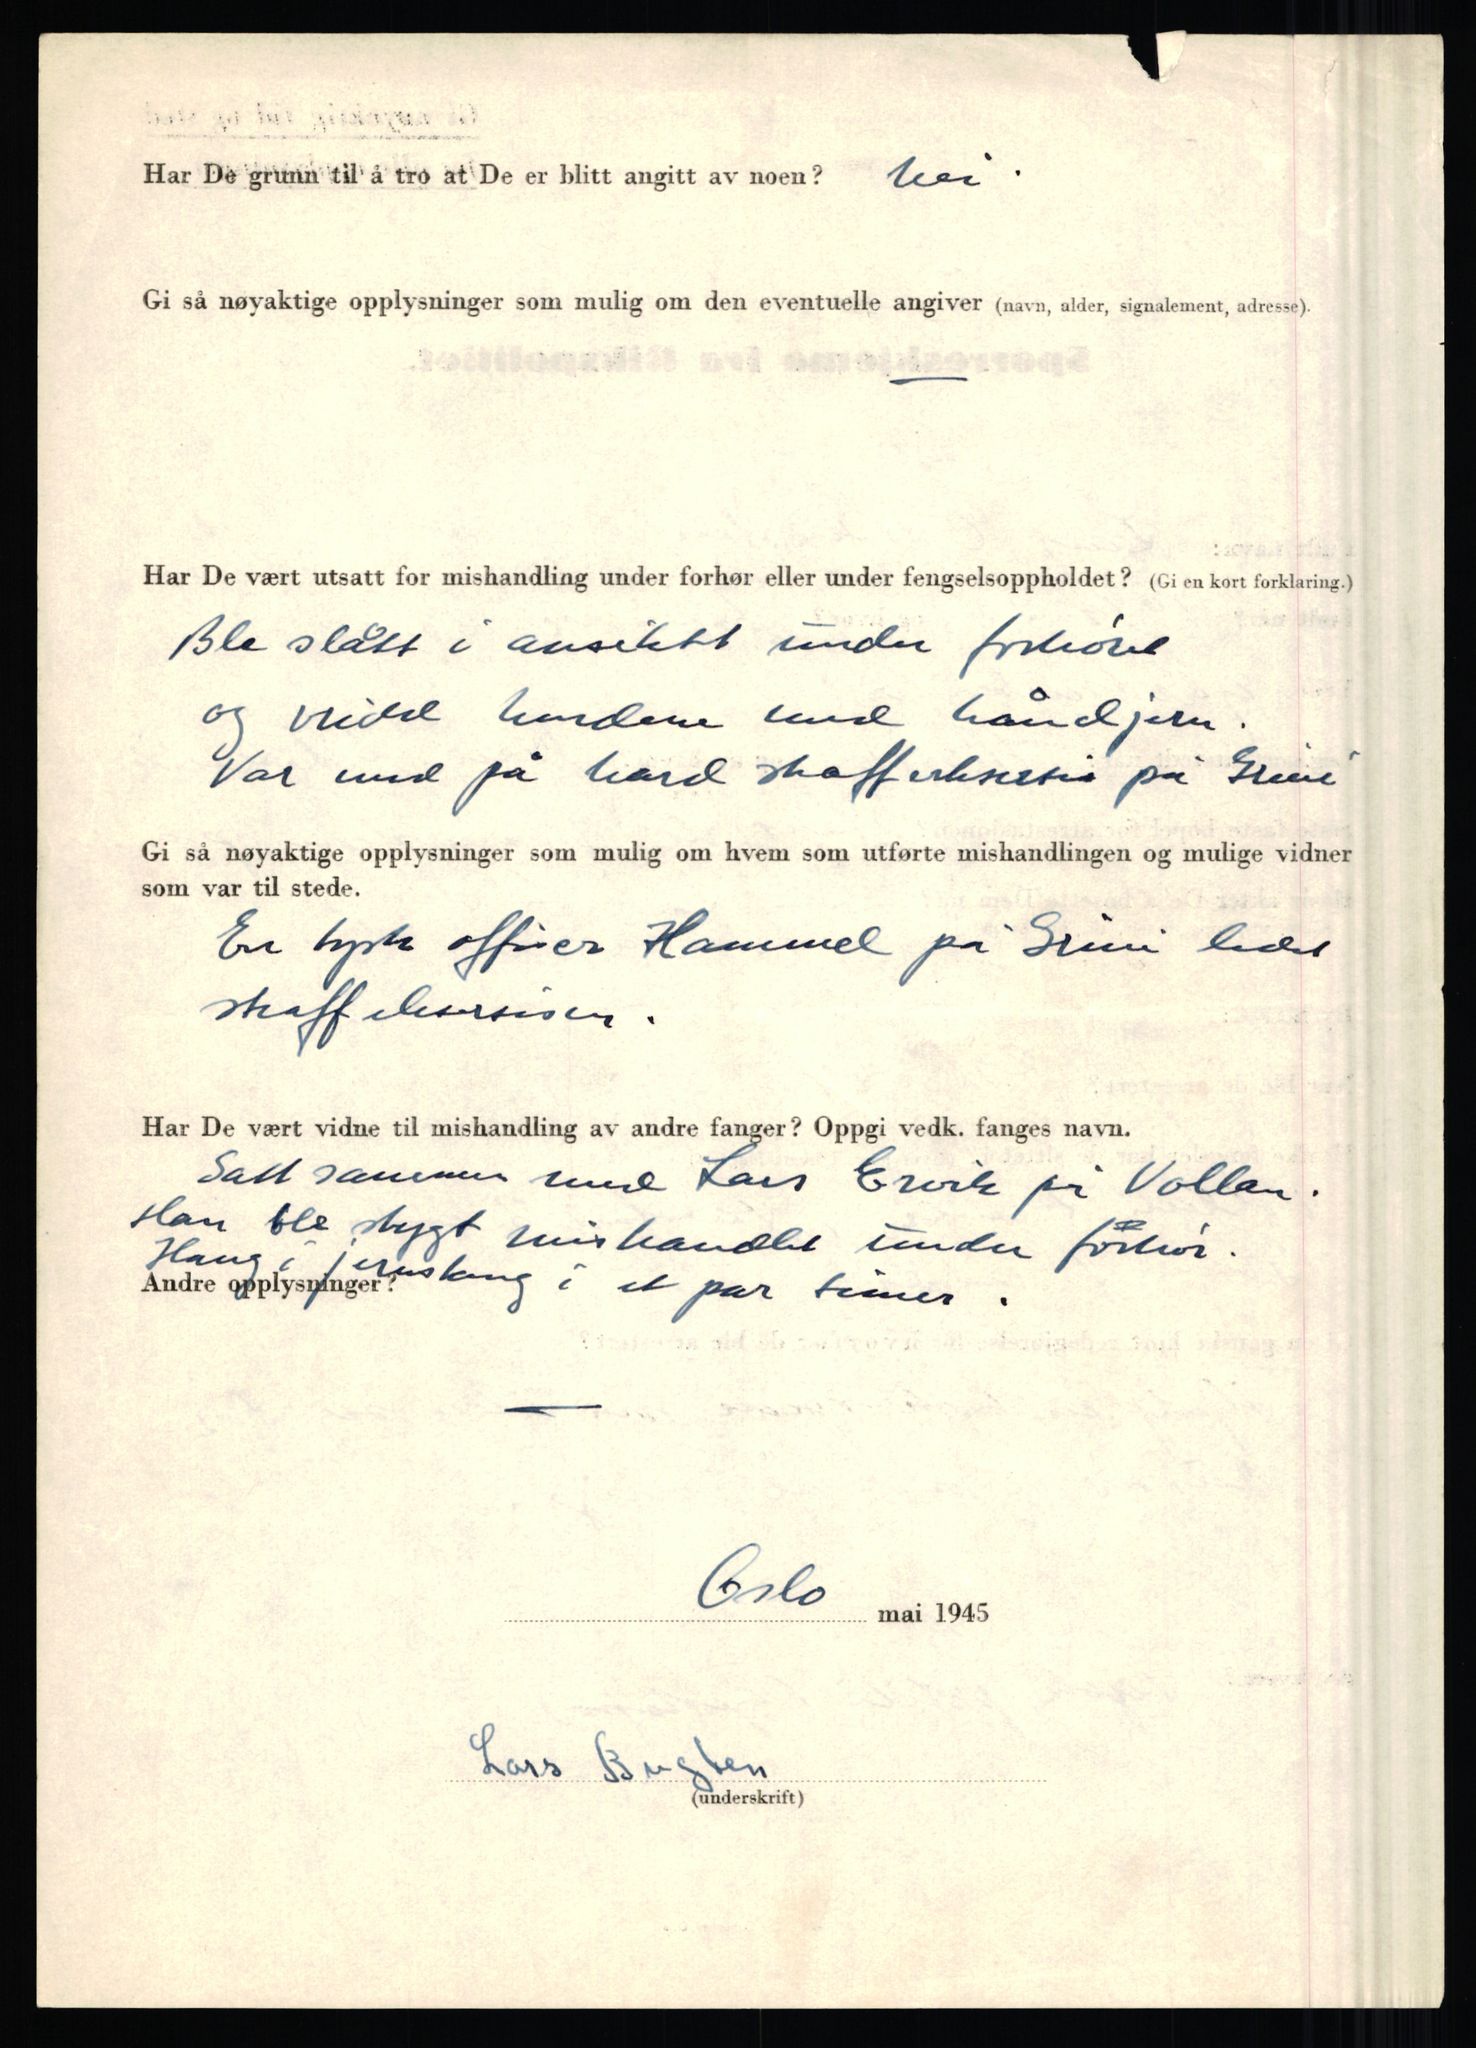 Har De grunn til å tro at De er blitt angitt av noen? Nei.
Gi så nøyaktige opplysninger som mulig om den eventuelle angiver (navn, alder, signalement, adresse).
—
Har De vært utsatt for mishandling under forhør eller under fengselsoppholdet? (Gi en kort forklaring.)
Ble slått i ansiktet under forhøret
og vridd hendene med håndjern.
Var med på hard straffeksersis på Grini
Gi så nøyaktige opplysninger som mulig om hvem som utførte mishandlingen og mulige vidner
som var til stede.
En tysk offiser Hammel på Grini ledet
straffeksersisen.
Har De vært vidne til mishandling av andre fanger? Oppgi vedk. fanges navn.
Satt sammen med Lars Ervik på Vollan.
Han ble stygt mishandlet under forhør.
Hang i jernstang i et par timer.
Andre opplysninger?
—
Oslo mai 1945
Lars Bugten
(underskrift)